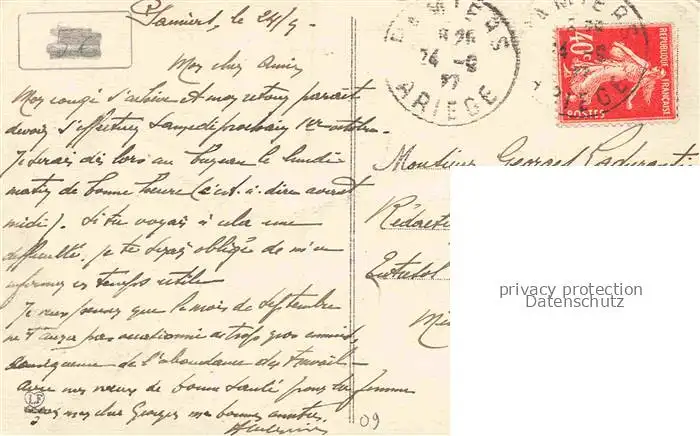 Pamiers, le 24/9.
Mon cher Ami,
Mon congé s'achève et mon retour paraît
devoir s'effectuer samedi prochain 1er octobre.
Je serai dès lors au bureau le lundi
matin de bonne heure (c'est-à-dire avant
midi). Si tu voyais à cela une
difficulté, je te serais obligé de m'en
informer en temps utile.
Je veux penser que le mois de septembre
ne t'aura pas occasionné de trop gros ennuis,
conséquence de l'abondance du travail.
Avec mes vœux de bonne santé pour ta femme
mon cher Georges, mes bonnes amitiés.
PAMIERS
24 -9
27
ARIEGE
PAMIERS
ARIEGE
40c
REPUBLIQUE FRANÇAISE
POSTES
Monsieur Georges
privacy protection
Datenschutz
LF
09